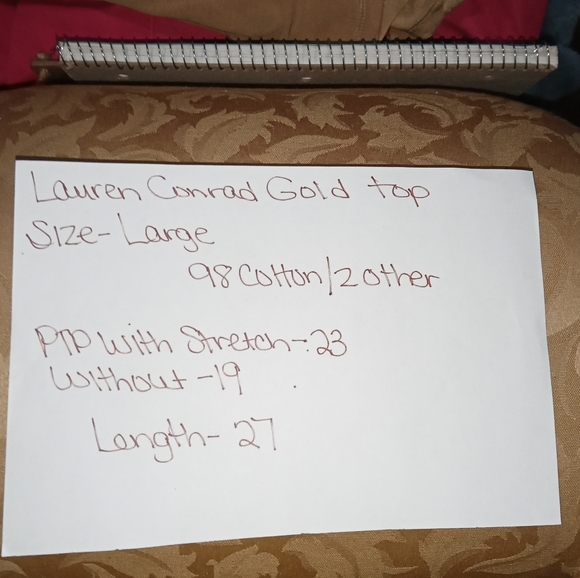 Lauren Conrad Gold top
Size-Large
98 Cotton/2 other
PTP with Stretch-23
Without-19
Length-27